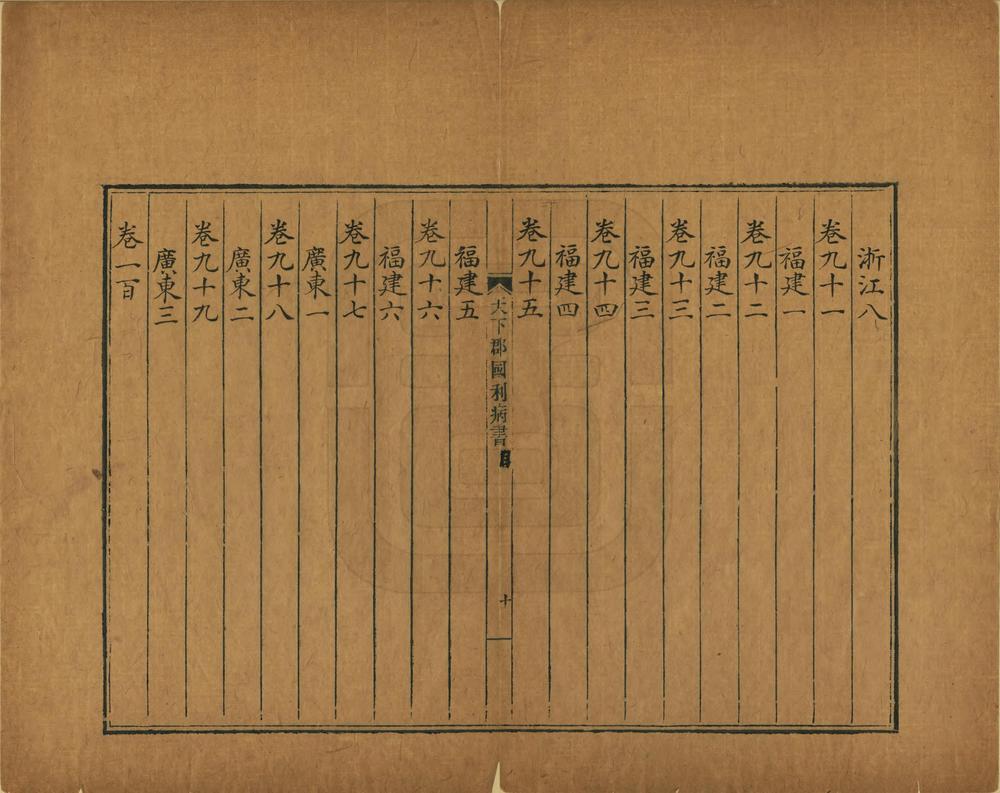 浙江八
卷九十一
福建一
卷九十二
福建二
卷九十三
福建三
卷九十四
福建四
卷九十五
天下郡國利病書 目 十
福建五
卷九十六
福建六
卷九十七
廣東一
卷九十八
廣東二
卷九十九
廣東三
卷一百